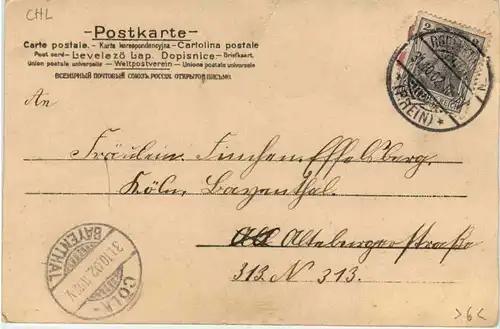 CHL
Postkarte
Carte postale. - Karta korespondencyjna - Cartolina postale
Post card - Levelező Lap. Dopisnice - Briefkaart.
Union postale universelle - Weltpostverein - Unione postale universale
ВСЕМIРНЫЙ ПОЧТОВЫЙ СОЮЗ. РОССIЯ. ОТКРЫТОЕ ПИСЬМО.
2
31.10.02
(RHEIN)
An
Fräulein Finchen Effelsberg.
Köln, Bayenthal.
Alteburger Straße
313 N 313.
CÖLN-
BAYENTHAL
31.10.02